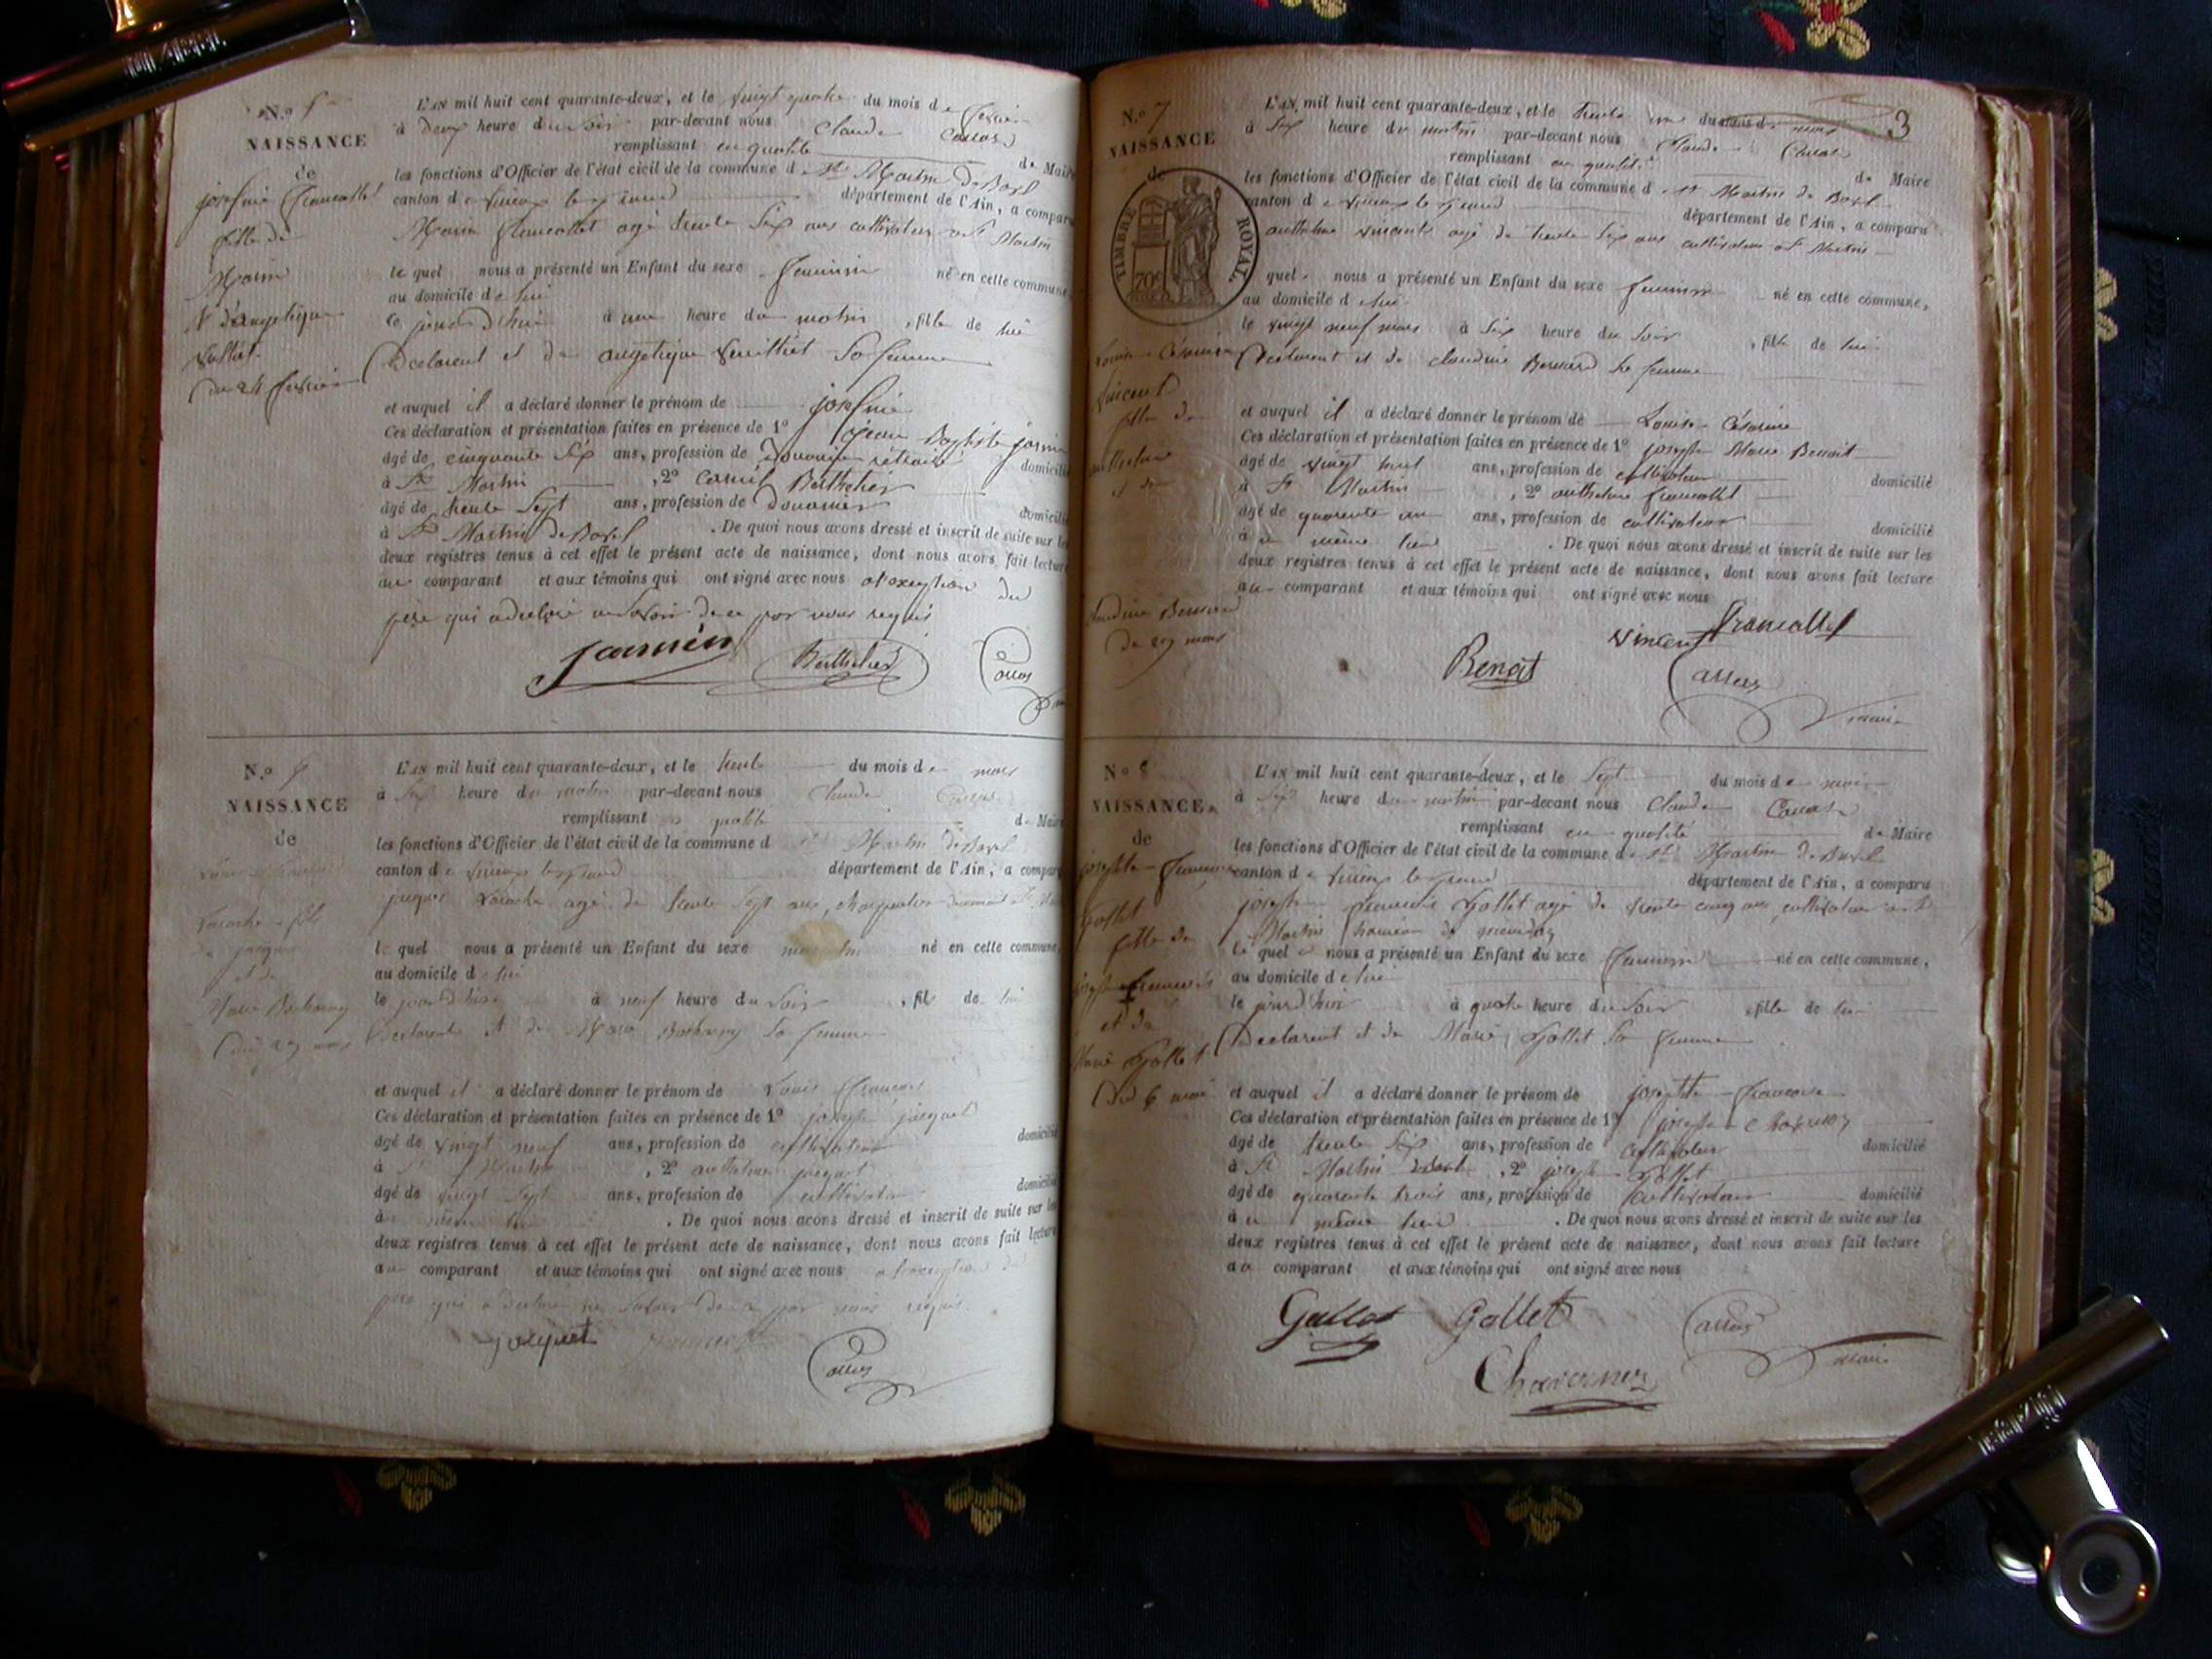 N.º 5
NAISSANCE
de
josephine francallet
fille de
Marin
& d'angelique
du 24 fevrier
L'AN mil huit cent quarante-deux, et le vingt quatre du mois de fevrier
à deux heure du soir par-devant nous Claude Carras
remplissant en qualité de Maire
les fonctions d'Officier de l'état civil de la commune de St Martin de Bavel
canton de virieux le grand département de l'Ain, a comparu
Marin francallet agé trente six ans cultivateur a St Martin
le quel nous a présenté un Enfant du sexe feminin né en cette commune
au domicile de lui
ce jourd'hui à une heure du matin, fille de lui
Declarent et de angelique sa femme
et auquel il a déclaré donner le prénom de josephine
Ces déclaration et présentation faites en présence de 1º jean Baptiste
âgé de cinquante six ans, profession de douanier retraité domicilié
à St Martin, 2º Berthelier
âgé de trente sept ans, profession de douanier domicilié
à St Martin de Bavel. De quoi nous avons dressé et inscrit de suite sur les
deux registres tenus à cet effet le présent acte de naissance, dont nous avons fait lecture
au comparant et aux témoins qui ont signé avec nous a l'exception du
père qui a declaré ne savoir de ce par nous requis
Berthelier Carras
N.º
NAISSANCE
de
Laroche fils
de jacques
et de
Marie
du 29 mars
L'AN mil huit cent quarante-deux, et le trente du mois de mars
à six heure du matin par-devant nous Claude Carras
remplissant en qualité de Maire
les fonctions d'Officier de l'état civil de la commune d St Martin de Bavel
canton de virieux le grand département de l'Ain, a comparu
jacques Laroche agé de trente sept ans, charpentier
le quel nous a présenté un Enfant du sexe masculin né en cette commune,
au domicile de lui
le jourd'hier à neuf heure du soir, fils de lui
Declarent et de Marie sa femme
et auquel il a déclaré donner le prénom de Louis francois
Ces déclaration et présentation faites en présence de 1º joseph jacquet
âgé de vingt neuf ans, profession de cultivateur domicilié
à St Martin, 2º anthelme jacquet
âgé de vingt sept ans, profession de cultivateur domicilié
à. De quoi nous avons dressé et inscrit de suite sur les
deux registres tenus à cet effet le présent acte de naissance, dont nous avons fait lecture
au comparant et aux témoins qui ont signé avec nous a l'exception du
père qui a declaré ne savoir de ce par nous requis.
jacquet Carras
3
N.º 7
NAISSANCE
de
TIMBRE ROYAL
70c
Louise Césarine
Vincent
fille de
anthelme
et de
claudine Bernard
du 29 mars
L'AN mil huit cent quarante-deux, et le trente un du mois de mars
à six heure du matin par-devant nous Claude Carras
remplissant en qualité de Maire
les fonctions d'Officier de l'état civil de la commune d St Martin de Bavel
canton de virieux le grand département de l'Ain, a comparu
anthelme vincent agé de trente six ans cultivateur a St Martin
quel nous a présenté un Enfant du sexe feminin né en cette commune,
au domicile de lui
le vingt neuf mars à six heure du soir, fille de lui
Declarent et de claudine Bernard sa femme
et auquel il a déclaré donner le prénom de Louise Césarine
Ces déclaration et présentation faites en présence de 1º joseph Marie Benoit
âgé de vingt huit ans, profession de cultivateur domicilié
à St Martin, 2º anthelme francallet
âgé de quarante un ans, profession de cultivateur domicilié
à u même lieu. De quoi nous avons dressé et inscrit de suite sur les
deux registres tenus à cet effet le présent acte de naissance, dont nous avons fait lecture
au comparant et aux témoins qui ont signé avec nous
Vincent francallet
Benoit Carras
maire
Nº 8
NAISSANCE
de
Gallet
fille de
joseph francois
et de
Marie Gallet
du 6 mai
L'AN mil huit cent quarante-deux, et le sept du mois de mai
à six heure du matin par-devant nous Claude Carras
remplissant en qualité de Maire
les fonctions d'Officier de l'état civil de la commune de St Martin de Bavel
canton de virieux le grand département de l'Ain, a comparu
joseph Gallet agé de trente cinq ans, cultivateur a St
Martin hameau de
le quel nous a présenté un Enfant du sexe feminin né en cette commune,
au domicile de lui
le jourd'hier à quatre heure du soir, fille de lui
Declarent et de Marie Gallet sa femme
et auquel il a déclaré donner le prénom de josephte francoise
Ces déclaration et présentation faites en présence de 1º joseph
âgé de trente six ans, profession de cultivateur domicilié
à St Martin, 2º joseph Gallet
âgé de quarante trois ans, profession de cultivateur domicilié
à u même lieu. De quoi nous avons dressé et inscrit de suite sur les
deux registres tenus à cet effet le présent acte de naissance, dont nous avons fait lecture
au comparant et aux témoins qui ont signé avec nous
Gallet Gallet Carras
maire